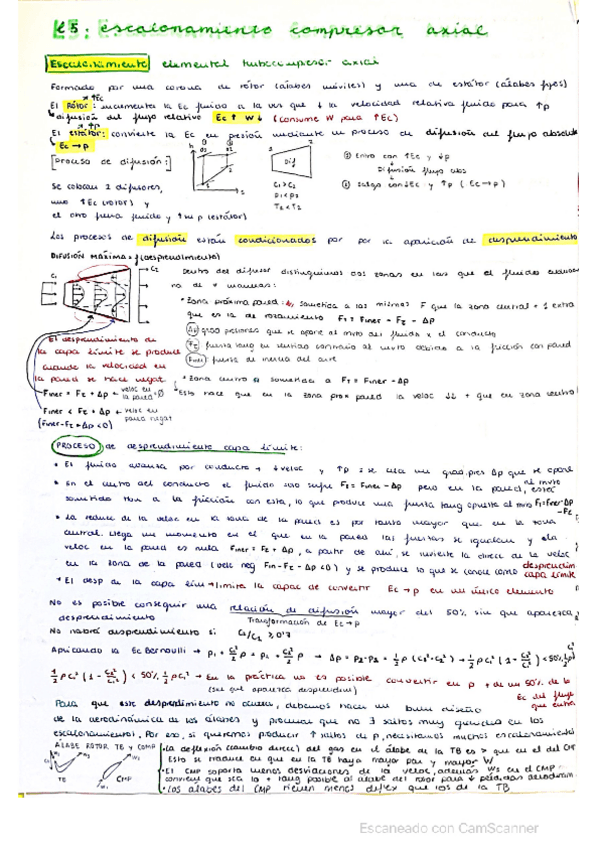 t5: escalonamiento compresor axial
Escalonamiento elemental turbocompresor axial
Formado por una corona de rótor (álabes móviles) y una de estátor (álabes fijos)
↑Ec
El rótor: incrementa la Ec fluido a la vez que ↓ la velocidad relativa fluido para ↑p
difusión del flujo relativo Ec↑ W↓ (consume W para ↑Ec)
↑p
El estátor: convierte la Ec en presión mediante un proceso de difusión del flujo absoluto
Ec → p
[proceso de difusión:]
h
s
Dif
C1 > C2
P1 < P2
T2 < T2
① Entro con ↑Ec y ↓p
Difusión flujo abs
② Salgo con ↓Ec y ↑p (Ec→p)
Se colocan 2 difusores,
uno ↑Ec (rotor) y
el otro frena fluido y ↑ su p (estátor)
Los procesos de difusión están condicionados por por la aparición de desprendimiento
DIFUSIÓN MÁXIMA = f(desprendimiento)
C1
C2
Dentro del difusor distinguimos dos zonas en las que el fluido
no de ≠ maneras:
• Zona próxima pared: sometida a las mismas F que la zona central + 1 extra
que es la de rozamiento FT = Finer - Fz - Δp
Δp grad presiones que se opone al mvto del fluido x el conducto
Fz fuerza tang en sentido contrario al mvto debida a la fricción con pared
Finer: fuerza de inercia del aire
• Zona centro → sometida a FT = Finer - Δp
El desprendimiento de
la capa límite se produce
cuando la velocidad en
la pared se hace negat.
Finer = Fz + Δp ← veloc en la pared = 0
•Esto hace que en la zona prox pared la veloc ↓↓ + que en zona centro
Finer < Fz + Δp ← veloc en pared negat
(Finer-Fz+Δp<0)
PROCESO de desprendimiento capa límite:
• El fluido avanza por conducto → ↓veloc y ↑p = se crea un grad.pres Δp que se opone
al mvto
• En el centro del conducto el fluido solo sufre FT = Finer - Δp pero en la pared, está
sometido tbn a la fricción con esta, lo que produce una fuerza tang opuesta al mvto FT=Finer-Δp
-Fz
• La reducc de la veloc en la zona de la pared es por tanto mayor que en la zona
central. Llega un momento en el que en la pared las fuerzas se igualan y la
veloc en la pared es nula Finer = Fz + Δp, a partir de ahí, se invierte la direcc de la veloc
en la zona de la pared (veloc neg Fin - Fz - Δp < 0) y se produce lo que se conoce como desprendim
capa límite
• El desp de la capa lím → limita la capac de convertir Ec → p en un único elemento
No es posible conseguir una relación de difusión mayor del 50% sin que aparezca
desprendimiento
Transformación de Ec → p
No habrá desprendimiento si C2/C1 ≥ 0'7
Aplicando la Ec Bernoulli → P1 + C1²/2 ρ = P2 + C2²/2 ρ → Δp = P2 - P1 = 1/2 ρ (C1² - C2²) → 1/2 ρ C1² (1 - C2²/C1²) < 50% 1/2 ρ C1²
1/2 ρ C1² (1 - C2²/C1²) < 50% 1/2 ρ C1² → En la práctica no es posible convertir en p + de un 50% de la
(sin que aparezca desprendim)
Ec del flujo
que entra
Para que este desprendimiento no ocurra, debemos hacer un buen diseño
de la aerodinámica de los álabes y procurar que no ∃ saltos muy grandes en los
escalonamientos. Por eso, si queremos producir ↑ saltos de p, necesitamos muchos escalonamientos
ÁLABE ROTOR TB Y COMP
TB
CMP
•La deflexión (cambio direcc) del gas en el álabe de la TB es > que en el del CMP
Esto se traduce en que en la TB haya mayor par y mayor W
•El CMP soporta menos desviaciones de la veloc, además W2 en el CMP
conviene que sea lo + tang posible al álabe del rotor para ↓ pérdidas aerodinám
•Los álabes del CMP tienen menos deflex que los de la TB
Escaneado con CamScanner